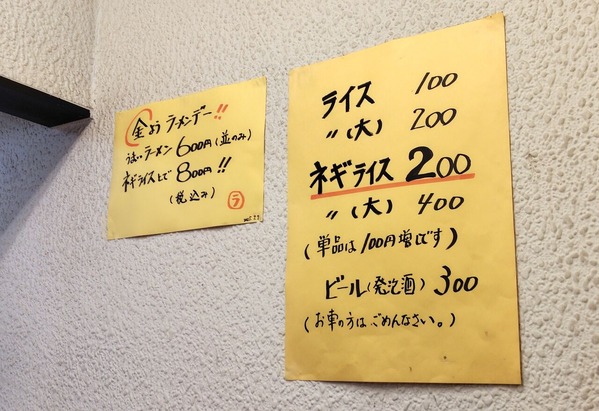 金よう ラーメンデー!!
うまいラーメン 600円(並のみ)
ネギライスとで 800円!!
(税込み)
ラ
ライス 100
〃(大) 200
ネギライス 200
〃(大) 400
(単品は100円増しです)
ビール(発泡酒) 300
(お車の方はごめんなさい。)